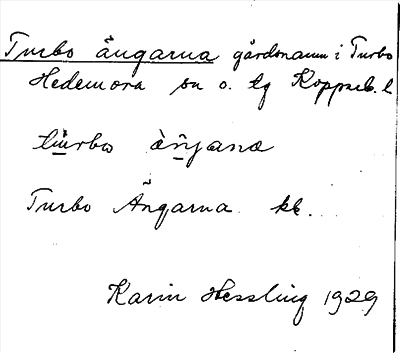 Turbo ängarna gårdsnamn i Turbo
Hedemora sn o. tg Kopparb. l
Turbo Ängarna kk.
Karin Hessling 1929